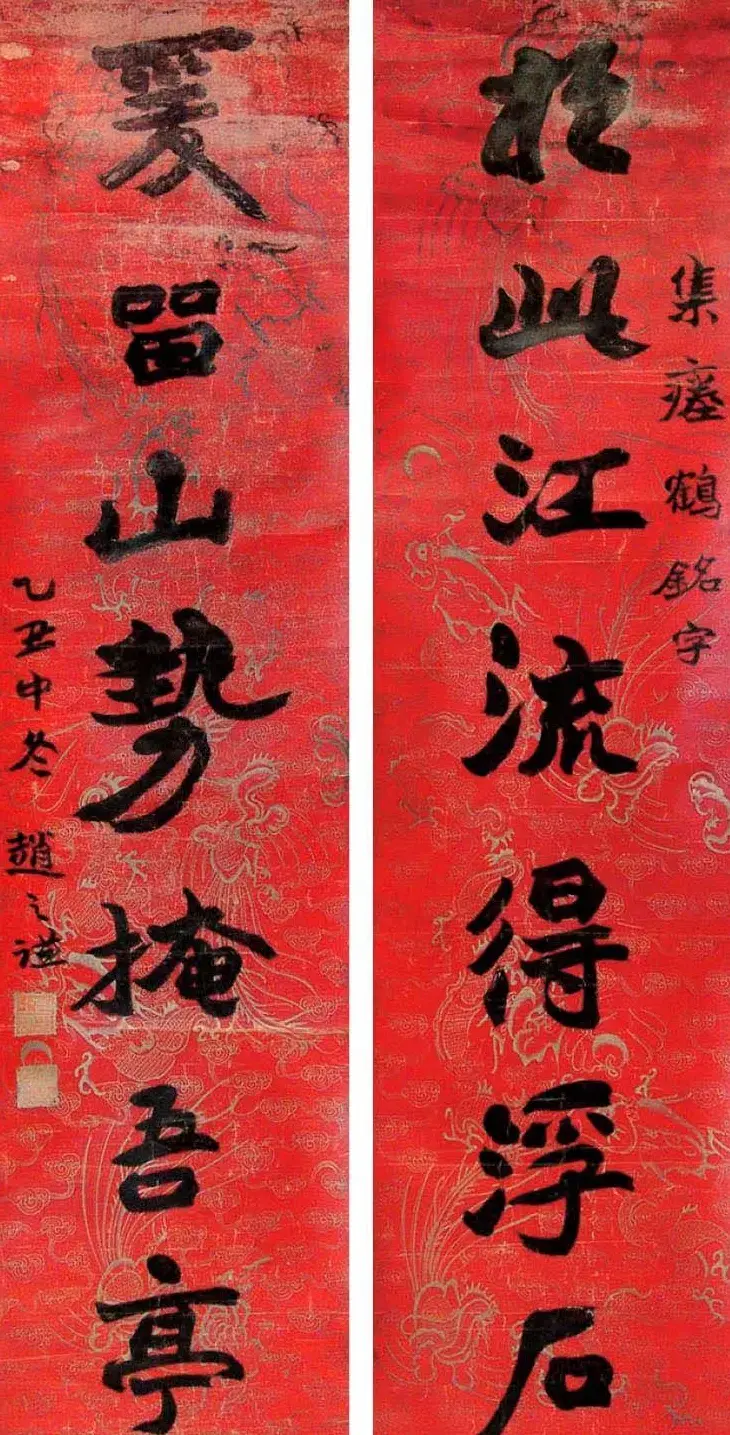 集瘞鶴銘字
扵此江流得浮石
爰留山勢掩吾亭
乙丑中冬 趙之謙